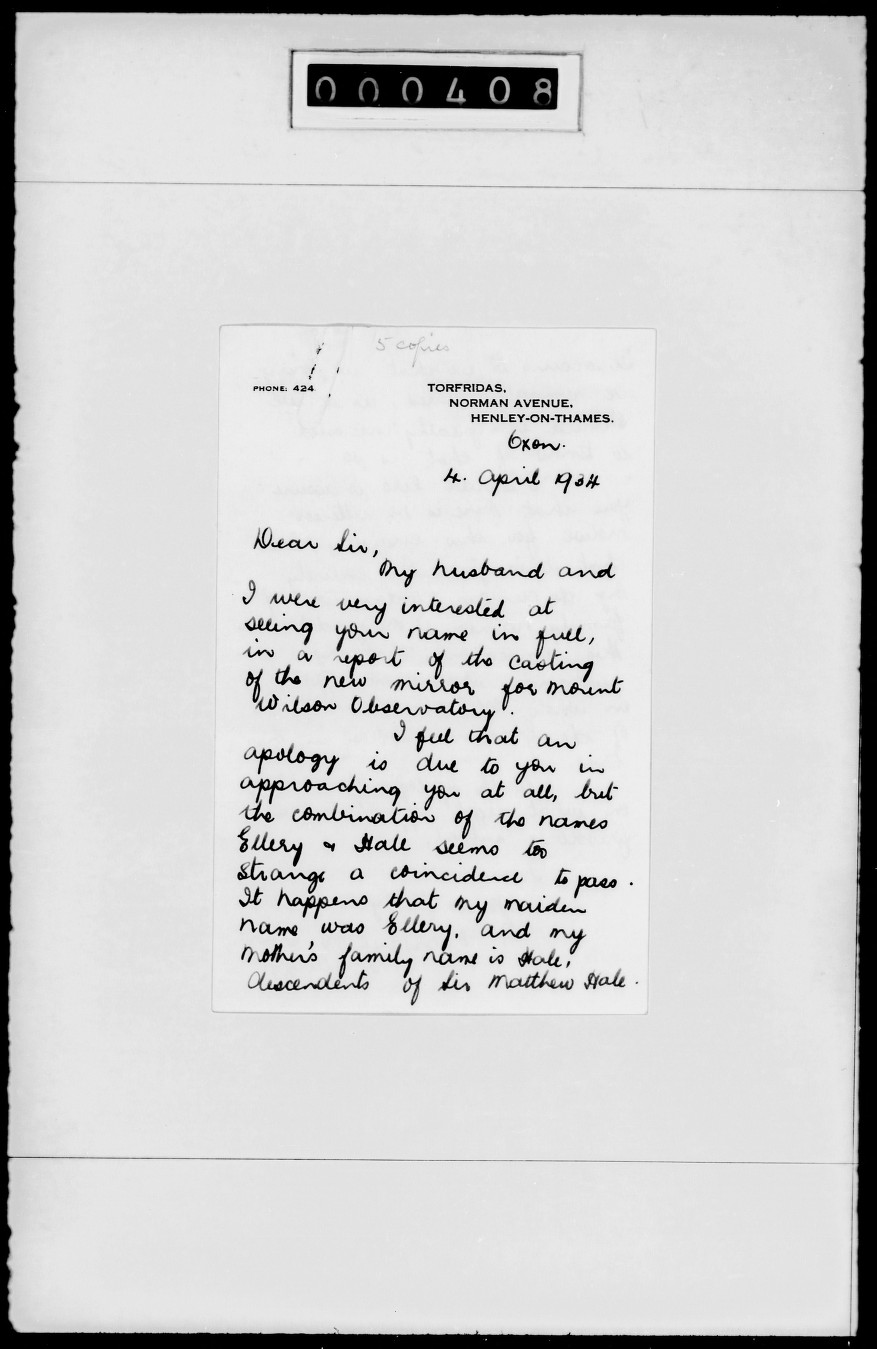 000408
5 copies
PHONE: 424
TORFRIDAS,
NORMAN AVENUE,
HENLEY-ON-THAMES.
Oxon.
4. April 1934
Dear Sir,
My husband and
I were very interested at
seeing your name in full,
in a report of the casting
of the new mirror for Mount
Wilson Observatory.
I feel that an
apology is due to you in
approaching you at all, but
the combination of the names
Ellery & Hale seems too
strange a coincidence to pass.
It happens that my maiden
name was Ellery, and my
mother's family name is Hale,
descendents of Sir Matthew Hale.